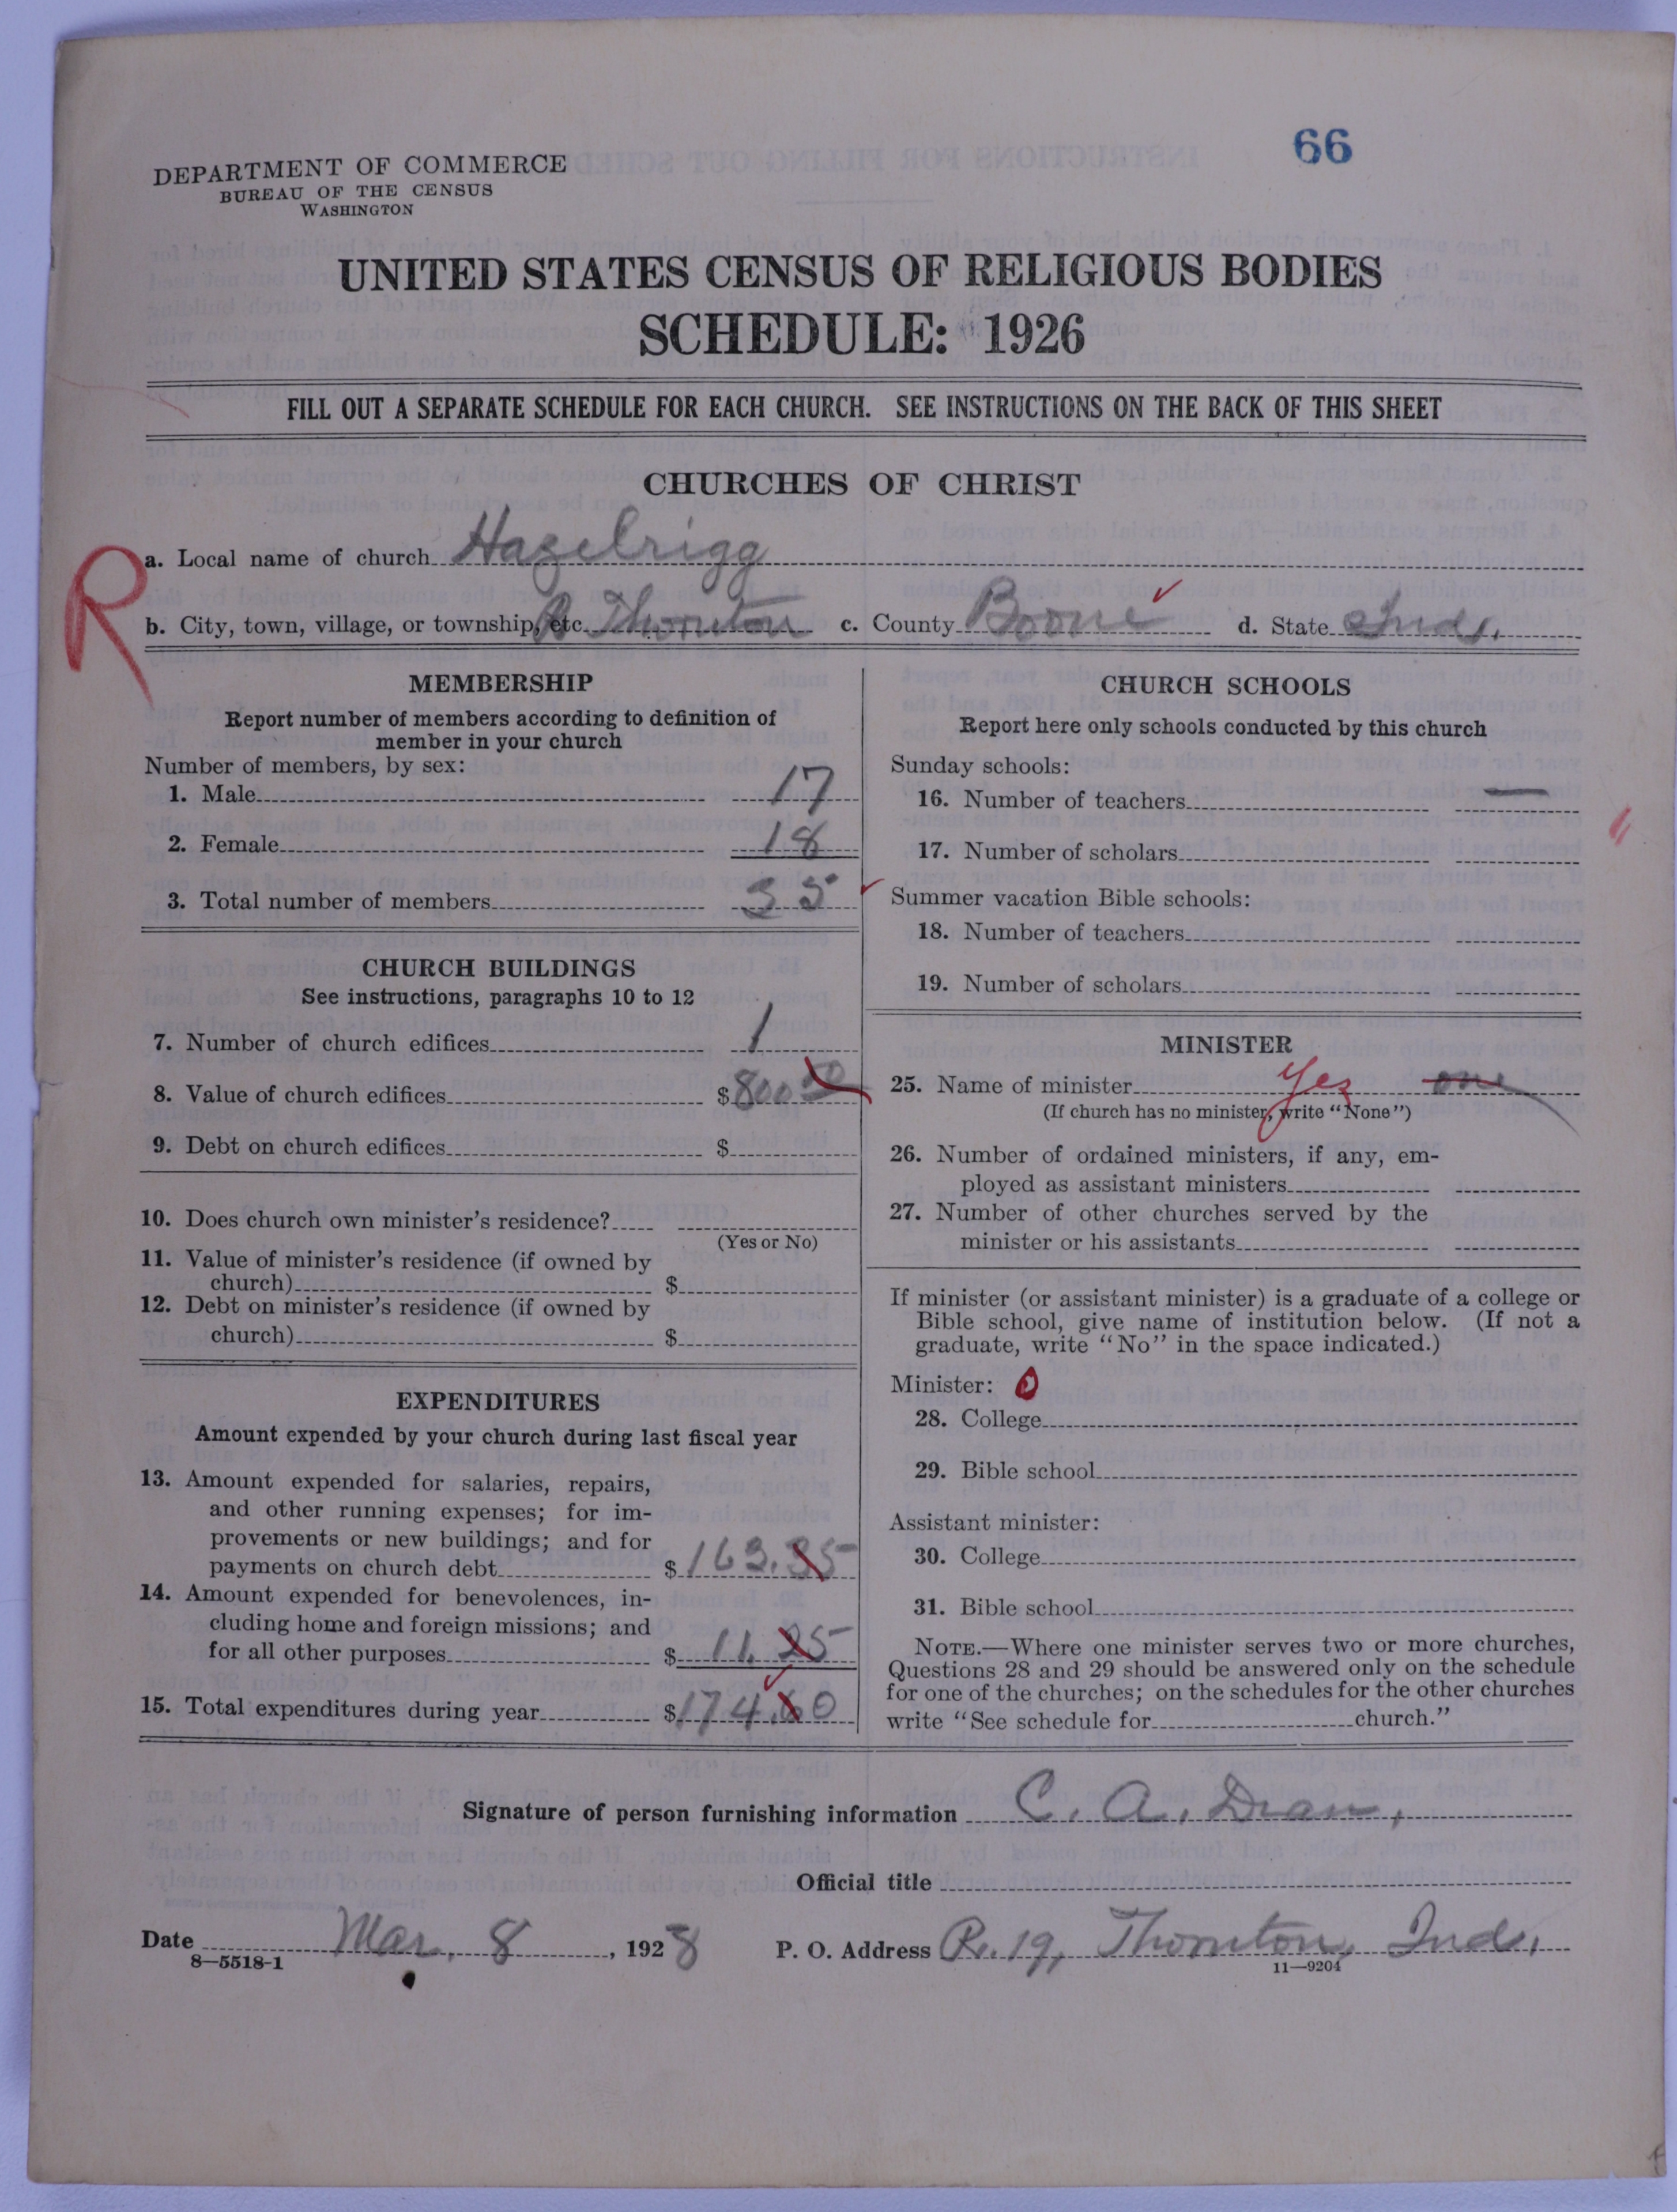 66
DEPARTMENT OF COMMERCE
BUREAU OF THE CENSUS
WASHINGTON
UNITED STATES CENSUS OF RELIGIOUS BODIES
SCHEDULE: 1926
FILL OUT A SEPARATE SCHEDULE FOR EACH CHURCH. SEE INSTRUCTIONS ON THE BACK OF THIS SHEET
CHURCHES OF CHRIST
R
a. Local name of church Hazelrigg
b. City, town, village, or township, etc. R Thornton c. County Boone d. State Ind.
MEMBERSHIP
Report number of members according to definition of
member in your church
Number of members, by sex:
1. Male 17
2. Female 18
3. Total number of members 35
CHURCH BUILDINGS
See instructions, paragraphs 10 to 12
7. Number of church edifices 1
8. Value of church edifices $800 00
9. Debt on church edifices $
10. Does church own minister's residence?
(Yes or No)
11. Value of minister's residence (if owned by
church) $
12. Debt on minister's residence (if owned by
church) $
EXPENDITURES
Amount expended by your church during last fiscal year
13. Amount expended for salaries, repairs,
and other running expenses; for im-
provements or new buildings; and for
payments on church debt $163.35
14. Amount expended for benevolences, in-
cluding home and foreign missions; and
for all other purposes $11.25
15. Total expenditures during year $174.60
CHURCH SCHOOLS
Report here only schools conducted by this church
Sunday schools:
16. Number of teachers —
17. Number of scholars
Summer vacation Bible schools:
18. Number of teachers
19. Number of scholars
MINISTER
25. Name of minister yes one
(If church has no minister, write "None")
26. Number of ordained ministers, if any, em-
ployed as assistant ministers
27. Number of other churches served by the
minister or his assistants
If minister (or assistant minister) is a graduate of a college or
Bible school, give name of institution below. (If not a
graduate, write "No" in the space indicated.)
Minister: 0
28. College
29. Bible school
Assistant minister:
30. College
31. Bible school
NOTE.—Where one minister serves two or more churches,
Questions 28 and 29 should be answered only on the schedule
for one of the churches; on the schedules for the other churches
write "See schedule for church."
Signature of person furnishing information C. A. Dean,
Official title
Date Mar. 8, 1928 P. O. Address R. 19, Thornton, Ind.
8—5518-1 11—9204